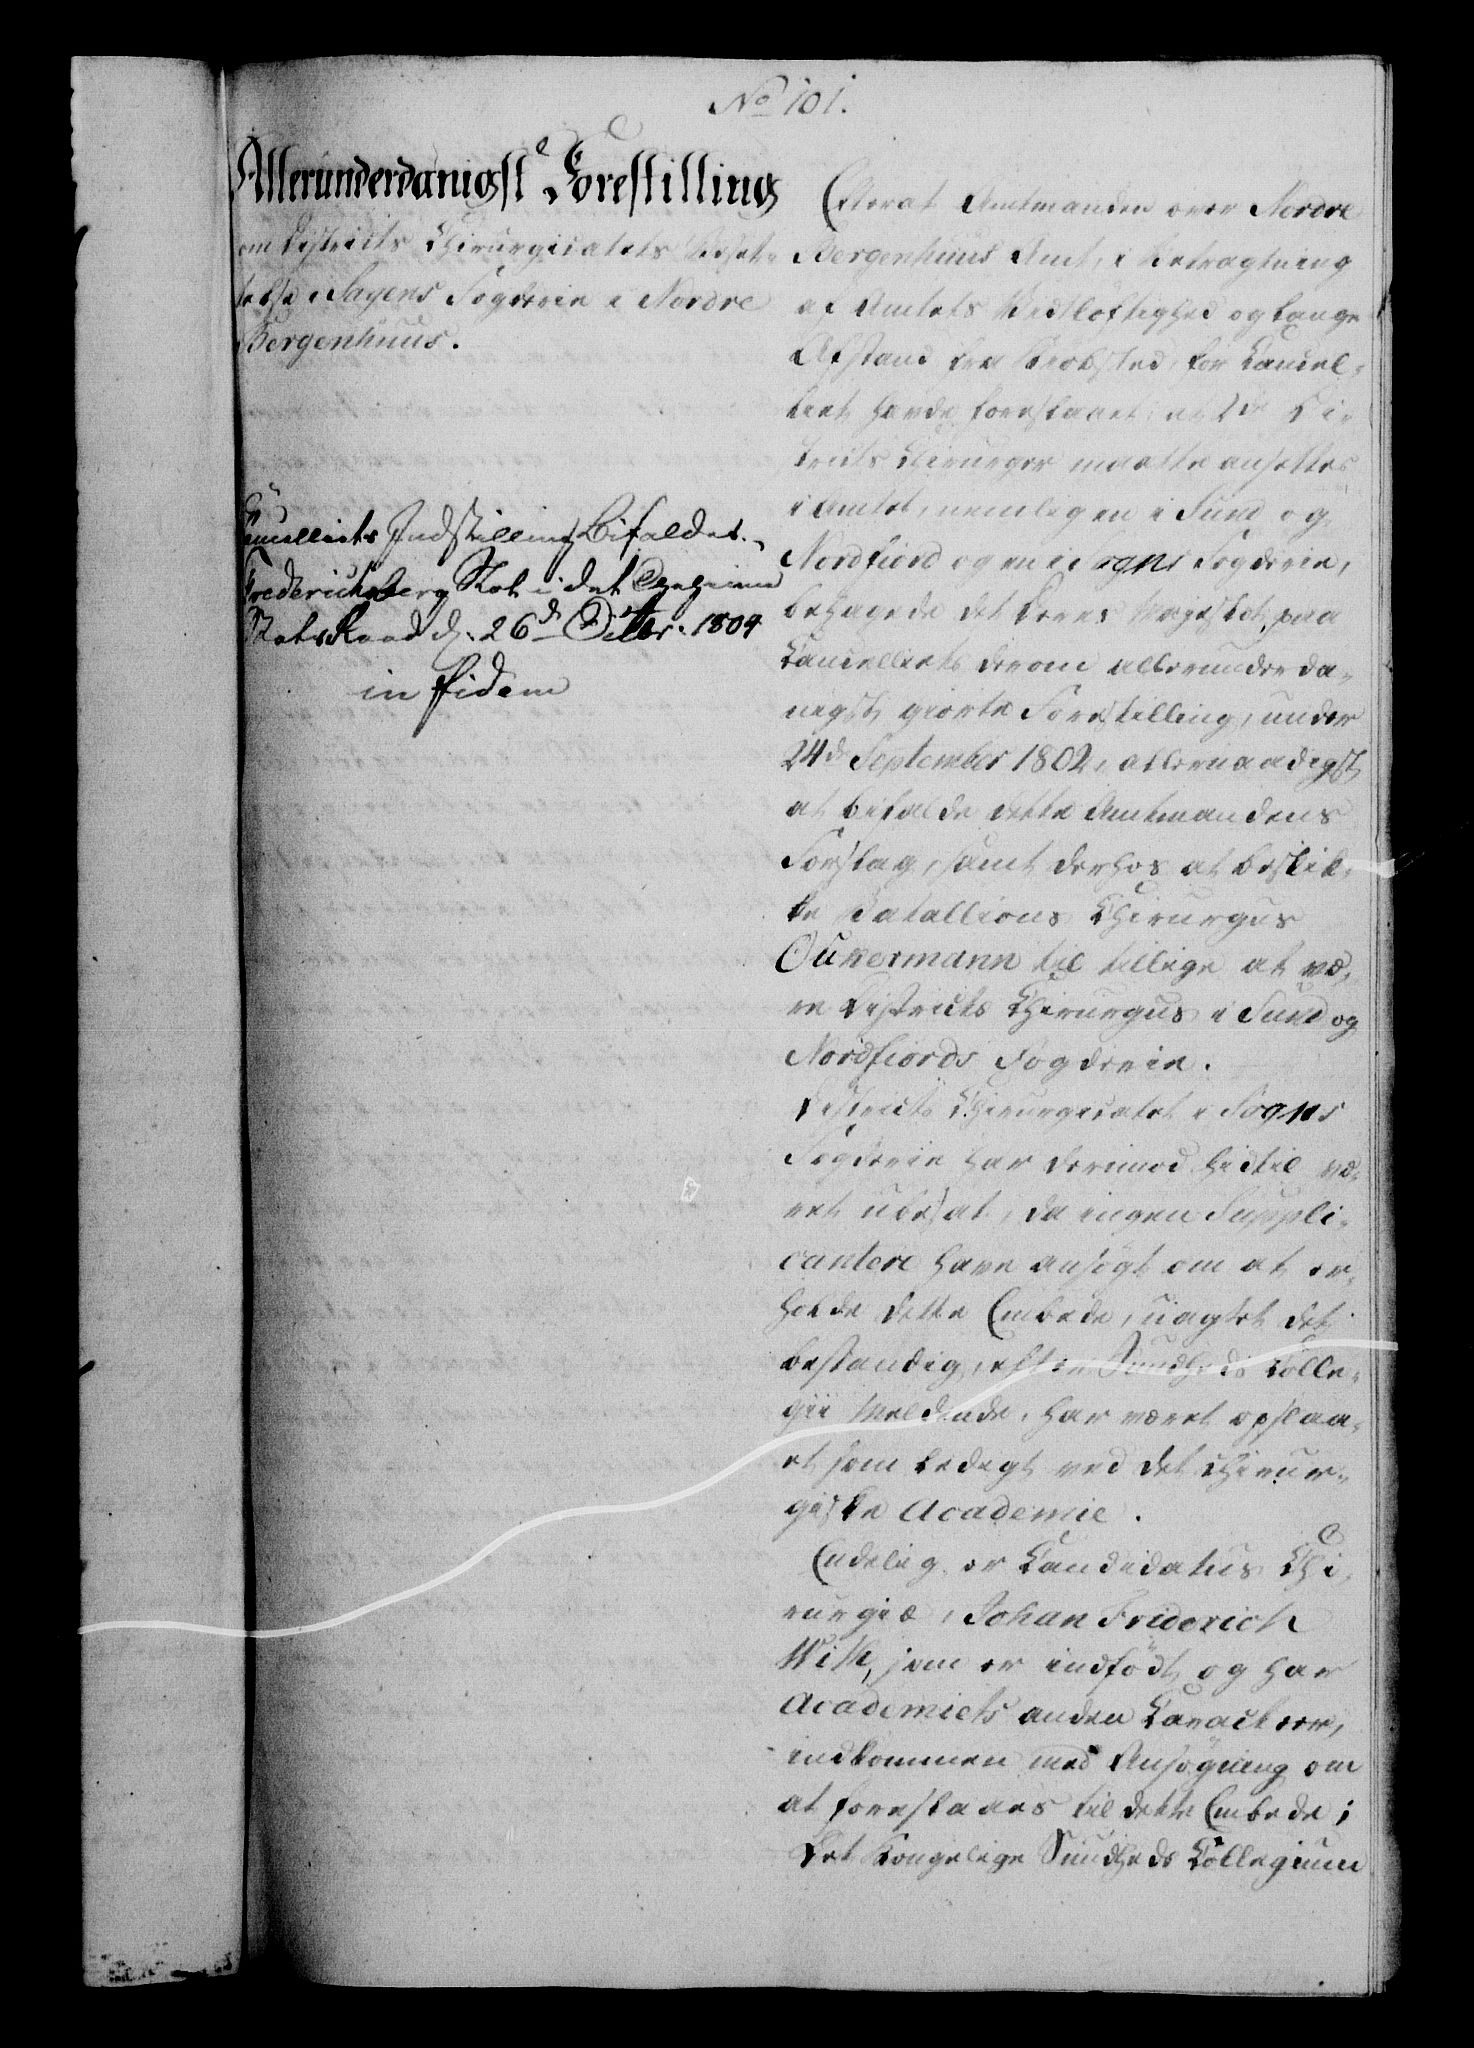 No 101.
Allerunderdanigste Forestilling
om Districts Chirurgicatets Besæt-
telse i Sogens Fogderie i Nordre
Bergenhuus.
Cancelliets Indstilling Bifaldes.
Frederichsberg Slot i det Geheime
Stats Raad d. 26de Octbr. 1804
in fidem
Efterat Amtmanden over Nordre
Bergenhuus Amt, i Betragtning
af Amtets Vidtløftighed og lange
Afstand fra Kiøbsted, for Cancel-
liet havde foreslaaet, at 2de Di-
stricts Chirurger maatte ansættes
i Amtet, nemlig en i Sund og
Nordfiord og en i Sogns Fogderie,
behagede det Deres Majestet, paa
Cancelliets derom allerunderda-
nigst giorte Forestilling, under
24de September 1802, allernaadigst
at bifalde dette Amtmandens
Forslag, samt derhos at beskik-
ke Batallions Chirurgus
Ouckermann til tillige at væ-
re Districts Chirurgus i Sund og
Nordfiords Fogderie.
Districts Chirurgicatet i Sogns
Fogderie har derimod hidtil væ-
ret ubesat, da ingen Suppli-
cantere have ansøgt om at er-
holde dette Embede, uagtet det
bestandig, efter Sundheds Colle-
gii Meldende, har været opslaa-
et som ledigt ved det chirur-
giske Academie.
Endelig er Candidatus Chi-
rurgiæ, Johan Friderich
With, som er indfødt og har
Academiets anden Caracteer,
indkommen med Ansøgning om
at foreslaaes til dette Embede;
Det Kongelige Sundheds Collegium